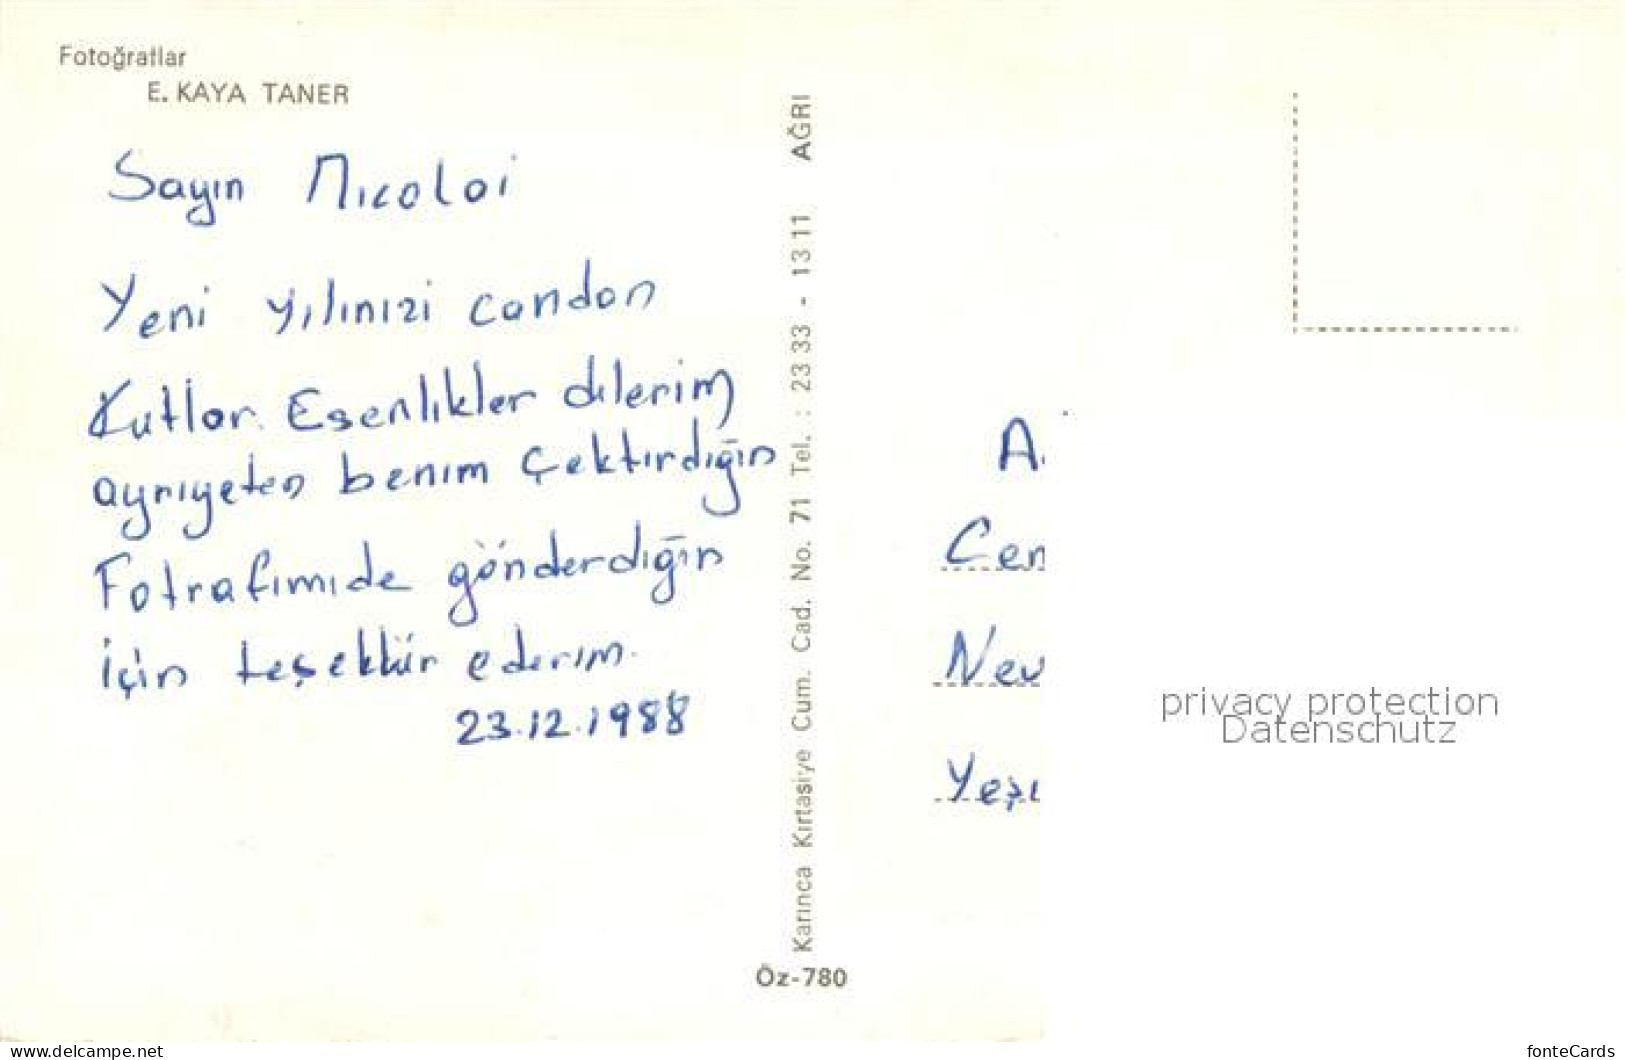 Fotoğraflar
E. KAYA TANER
Sayın Nıcoloi
Yeni yılınızi candan
Kutlar. Esenlıkler dılerim
ayrıyeten benım Çektırdığın
Fotrafımıde gönderdığin
için teşekkür ederım.
23.12.1988
Karınca Kırtasiye Cum. Cad. No. 71 Tel. : 23 33 - 13 11 AĞRI
Öz-780
A.
Cen
Nev
Yeşı
privacy protection
Datenschutz
www.delcampe.net
fonteCards